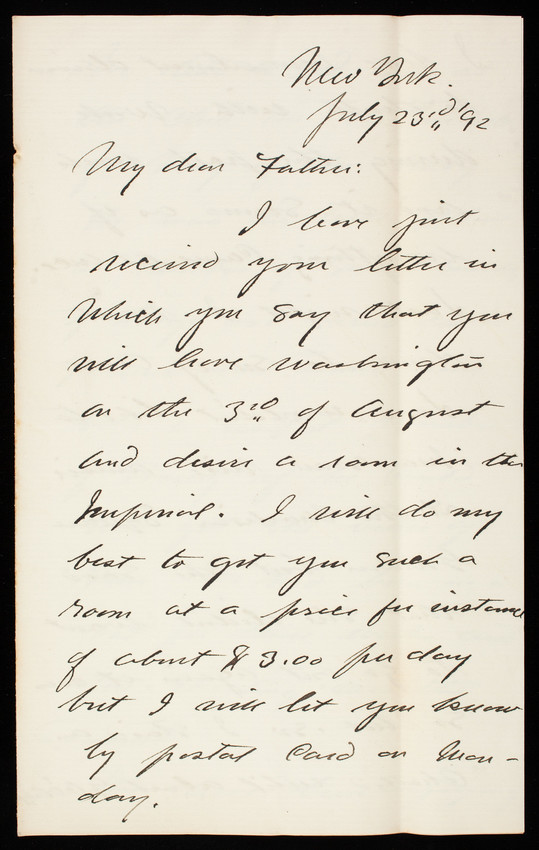 New York.
July 23rd '92
My dear Father:
I have just
received your letter in
which you say that you
will leave Washington
on the 3rd of August
and desire a room in the
Imperial. I will do my
best to get you such a
room at a price for instance
of about $3.00 per day
but I will let you know
by postal card on Mon-
day.